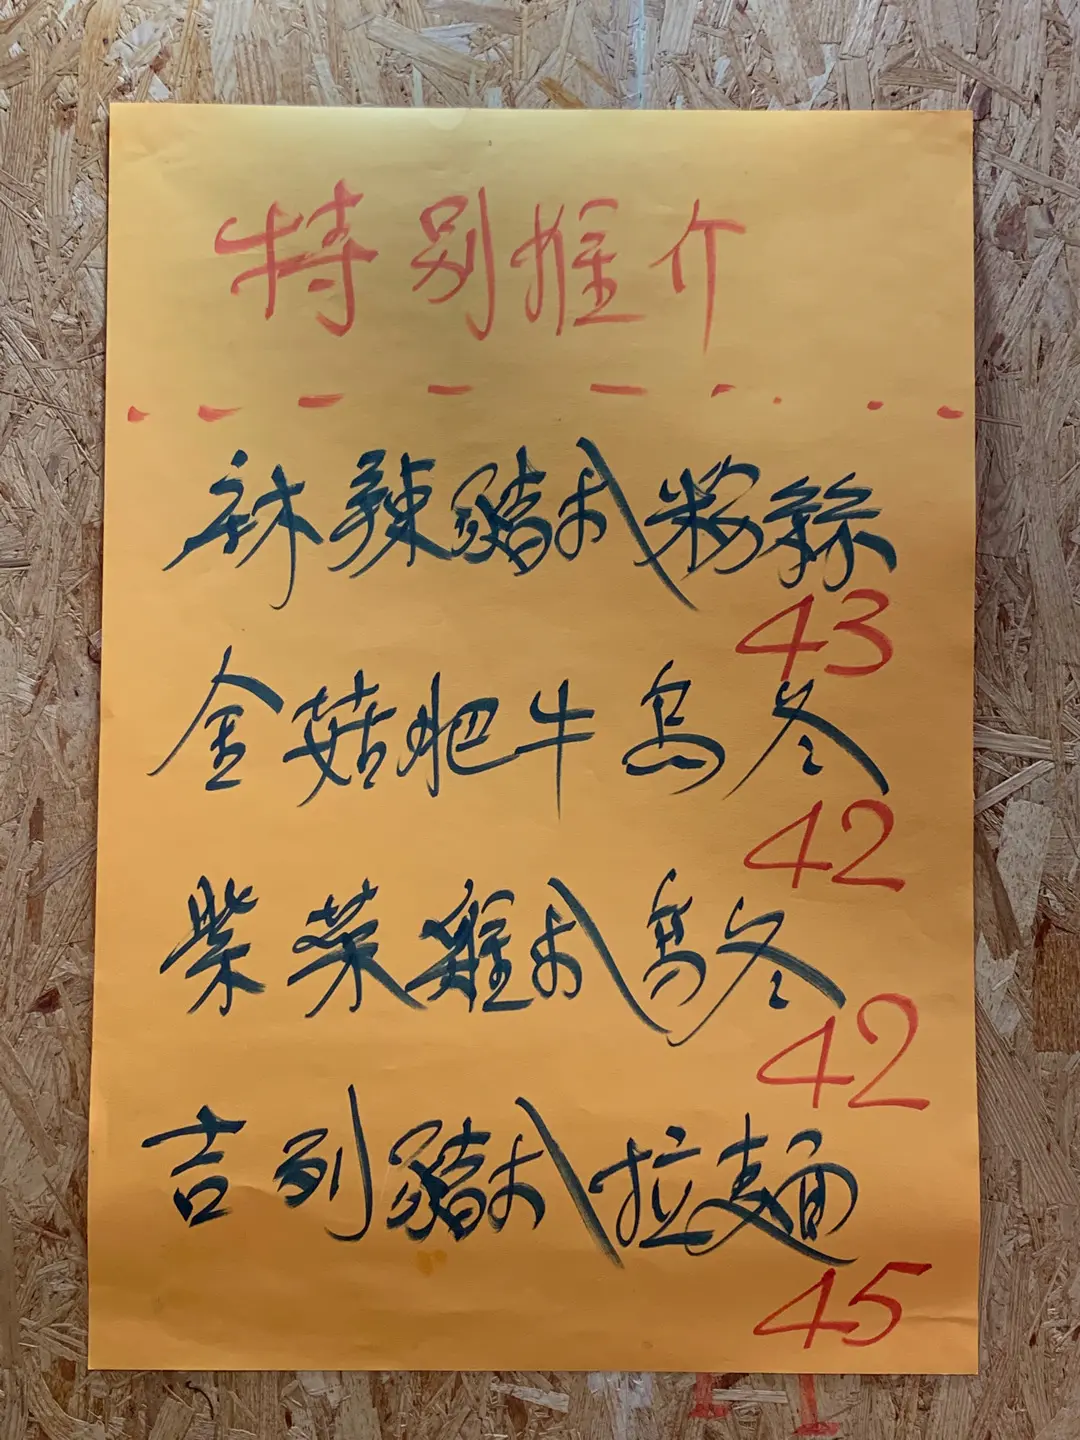 特別推介
麻辣豬扒粉絲
43
金菇肥牛烏冬
42
紫菜雞扒烏冬
42
吉列豬扒拉麵
45